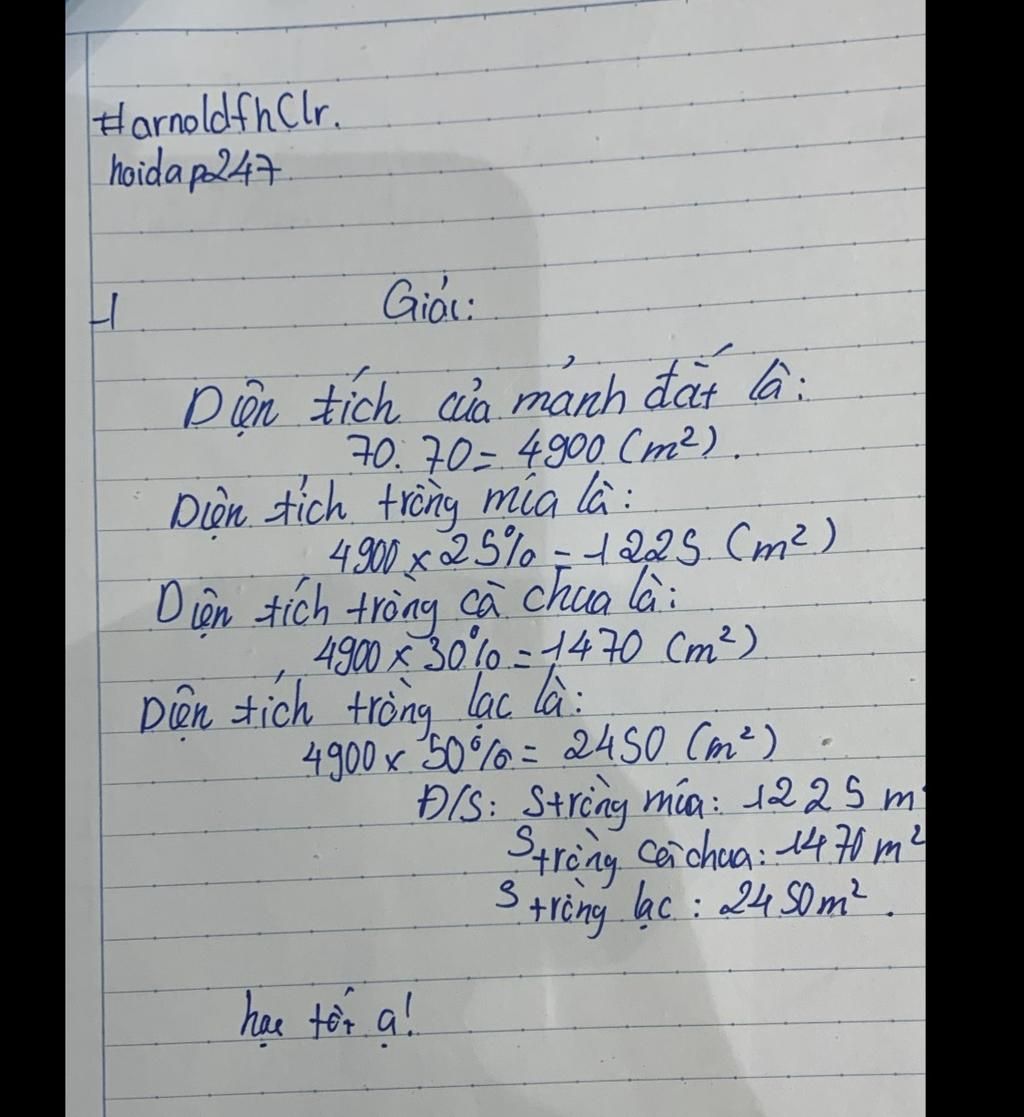 #arnoldfhClr.
hoidap247
Giải:
Diện tích của mảnh đất là:
70. 70 = 4900 (m²).
Diện tích trồng mía là:
4900 x 25% = 1225 (m²)
Diện tích trồng cà chua là:
4900 x 30% = 1470 (m²)
Diện tích trồng lạc là:
4900 x 50% = 2450 (m²)
Đ/S: S trồng mía: 1225 m
S trồng cà chua: 1470 m²
S trồng lạc: 2450m².
học tốt ạ!